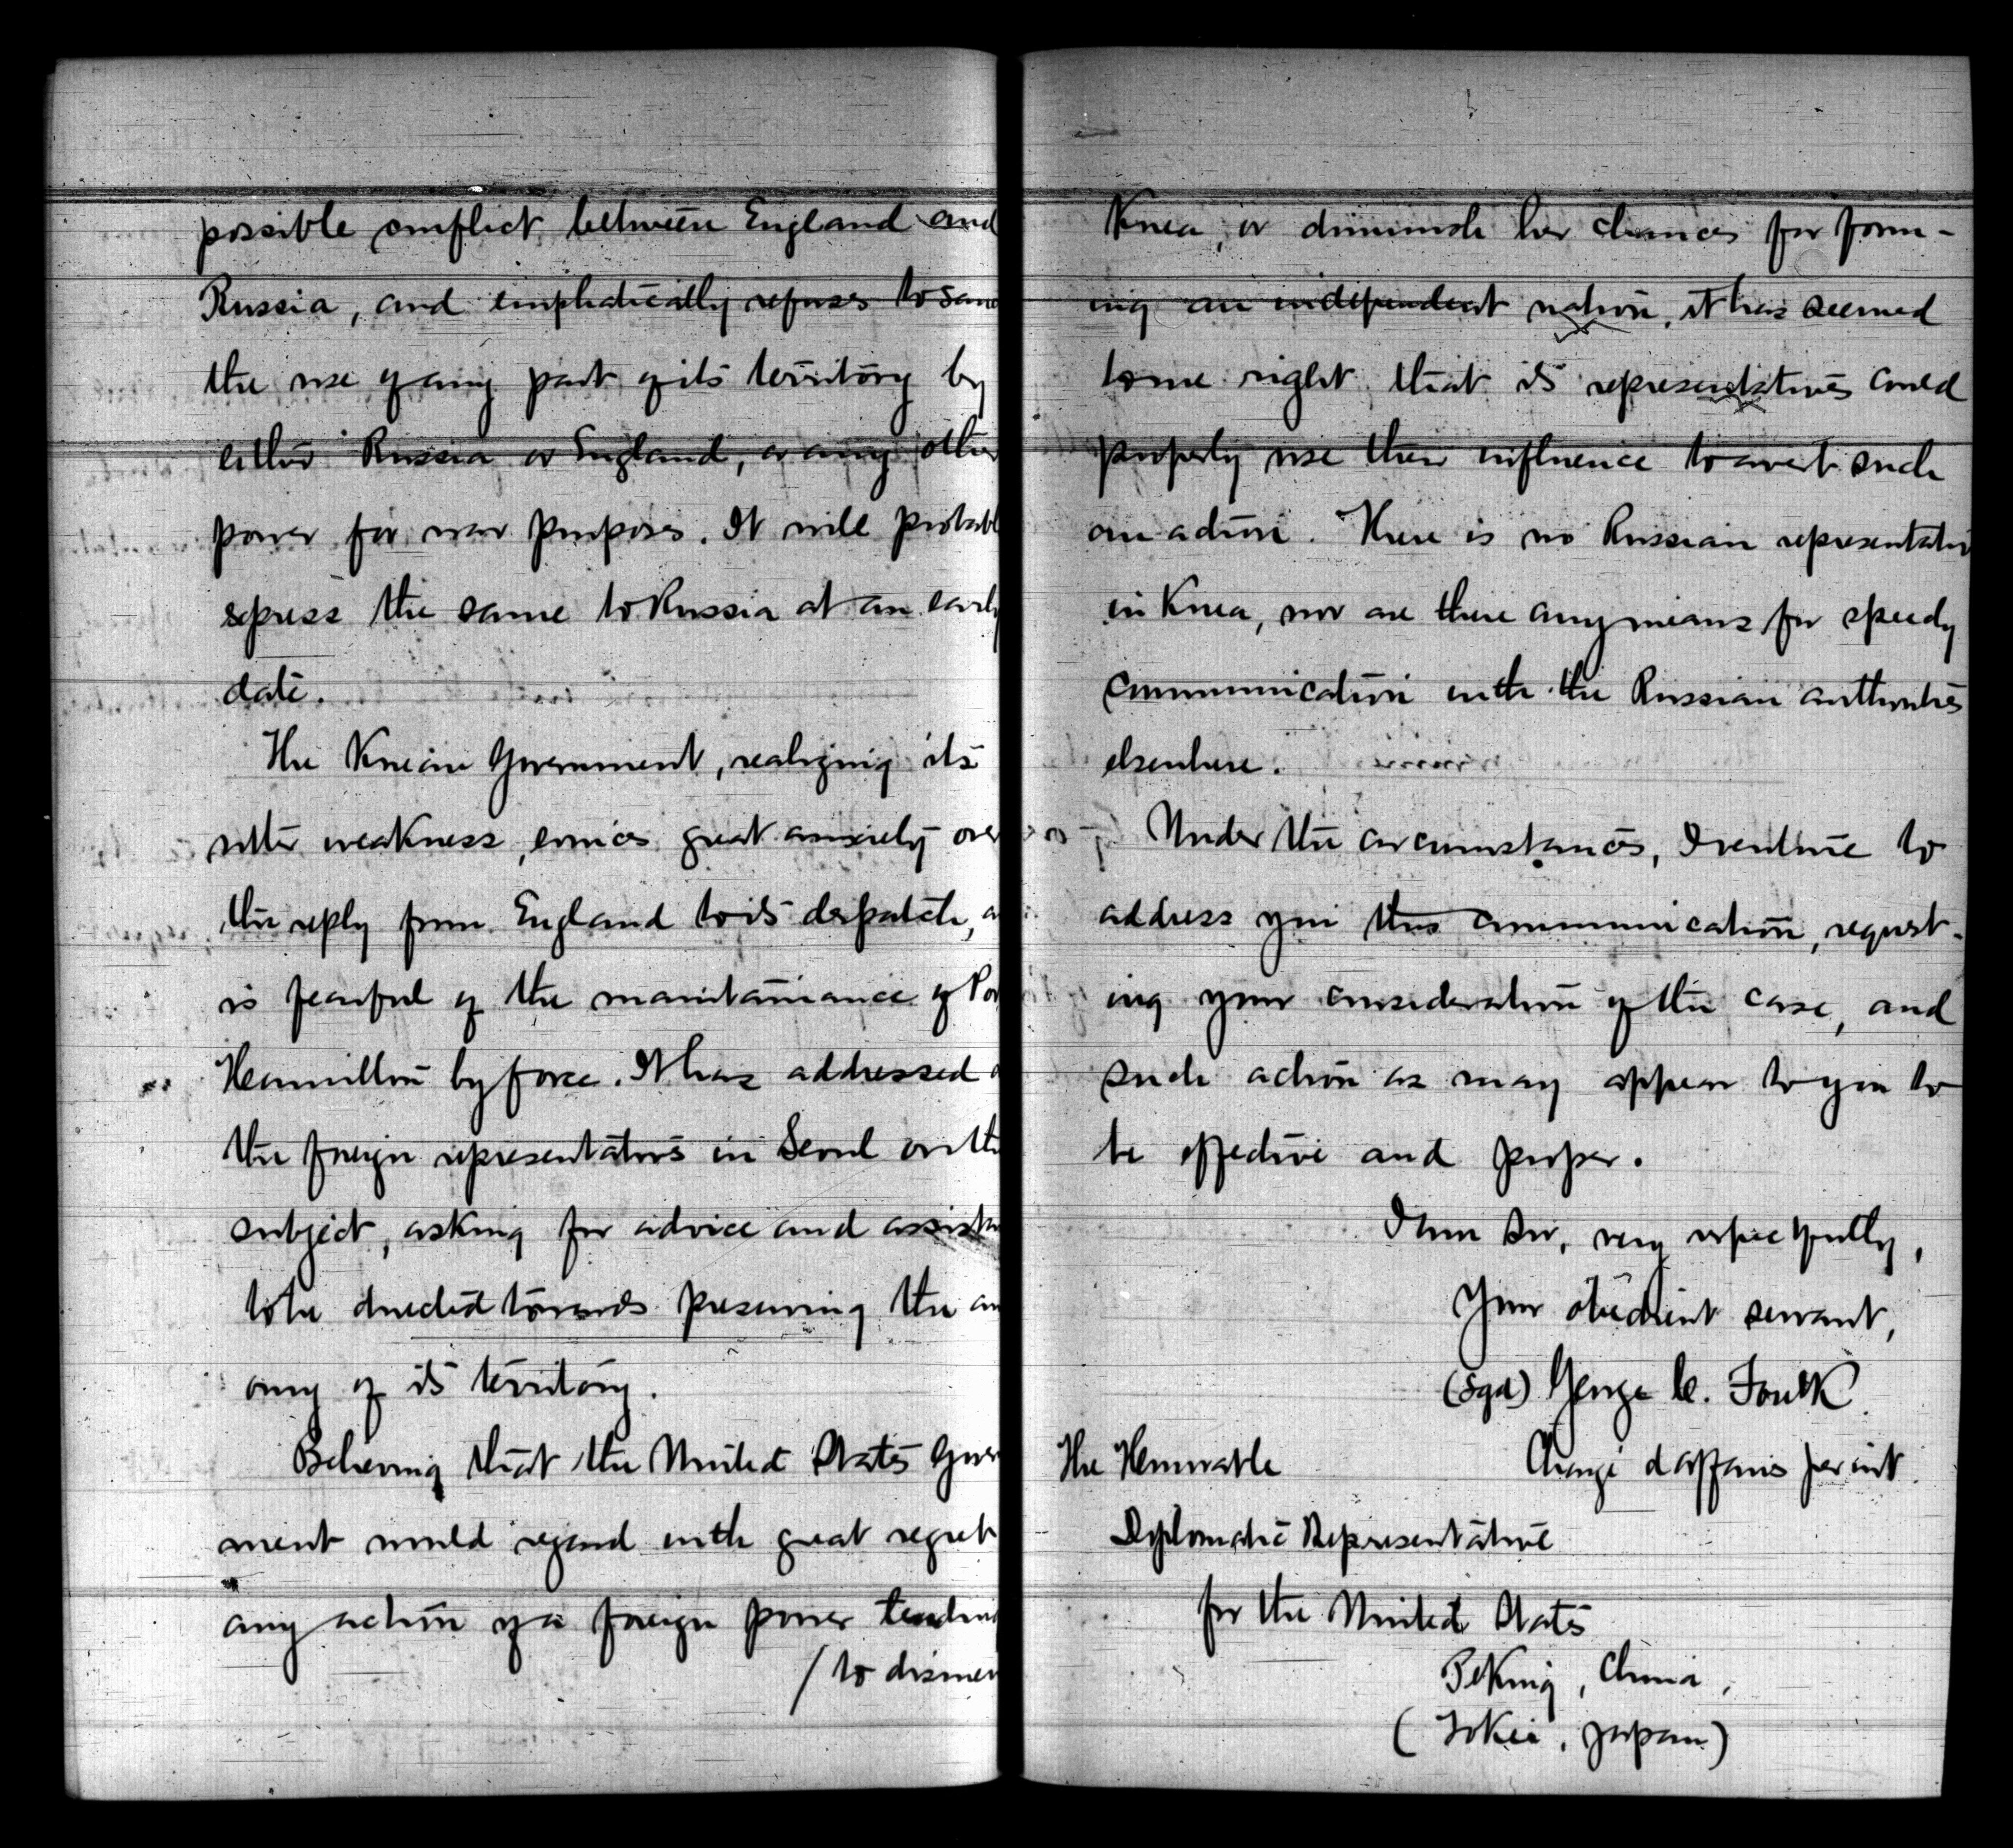 possible conflict between England and
Russia, and emphatically refuses to sanc
the use of any part of its territory by
either Russia or England, or any other
power for war purposes. It will probabl
express the same to Russia at an early
date.
The Korean Government, realizing its
utter weakness, evinces great anxiety over
the reply from England to its despatch, a
is fearful of the maintainance of Por
Hamilton by force. It has addressed
the foreign representatives in Seoul on th
subject, asking for advice and assista
to be directed towards preserving the
any of its territory.
Believing that the United States Gover
ment would regard with great regret
any action of a foreign power tending
/ to dismem
Korea, or diminish her chances for form-
ing an independent nation, it has seemed
to me right that its representatives could
properly use their influence to avert such
an action. There is no Russian representativ
in Korea, nor are there any means for speedy
communication with the Russian authorities
elsewhere.
Under the circumstances, I venture to
address you this communication, request-
ing your consideration of the case, and
such action as may appear to you to
be effective and proper.
I am Sir, very respectfully,
Your obedient servant,
(Sgd) George C. Foulk
The Honorable
Chargé d'affaires per int.
Diplomatic Representative
for the United States
Peking, China,
(Tokio, Japan)